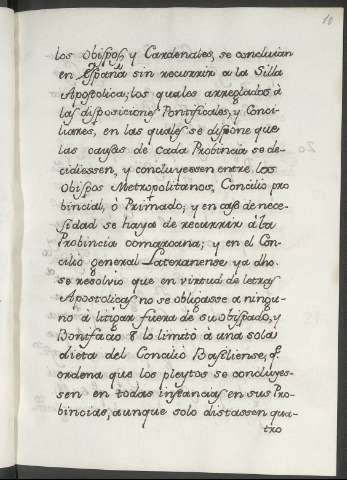 10
los Obispos, y Cardenales, se concluian
en España sin recurrir a la Silla
Apostolica; los quales arreglados à
las disposiciones Pontificales, y Conci-
liares, en las quales se dispone que
las causas de cada Probincia se de-
cidiessen, y concluyessen entre los
Obispos Metropolitanos, Concilio pro
bincial, ò Primado; y en caso de nece-
sidad se haya de recurrir à la
Probincia comarcana; y en el Con-
cilio general Lateranense ya dho.
se resolvio que en virtud de letras
Apostolicas no se obligasse a ningu-
no à litigar fuera de su obispado, y
Bonifacio 8 lo limitò à una sola
dieta del Concilio Basiliense, q.
ordena que los pleytos se concluyes-
sen en todas instancias en sus Pro-
bincias, aunque solo distassen qua-
tro